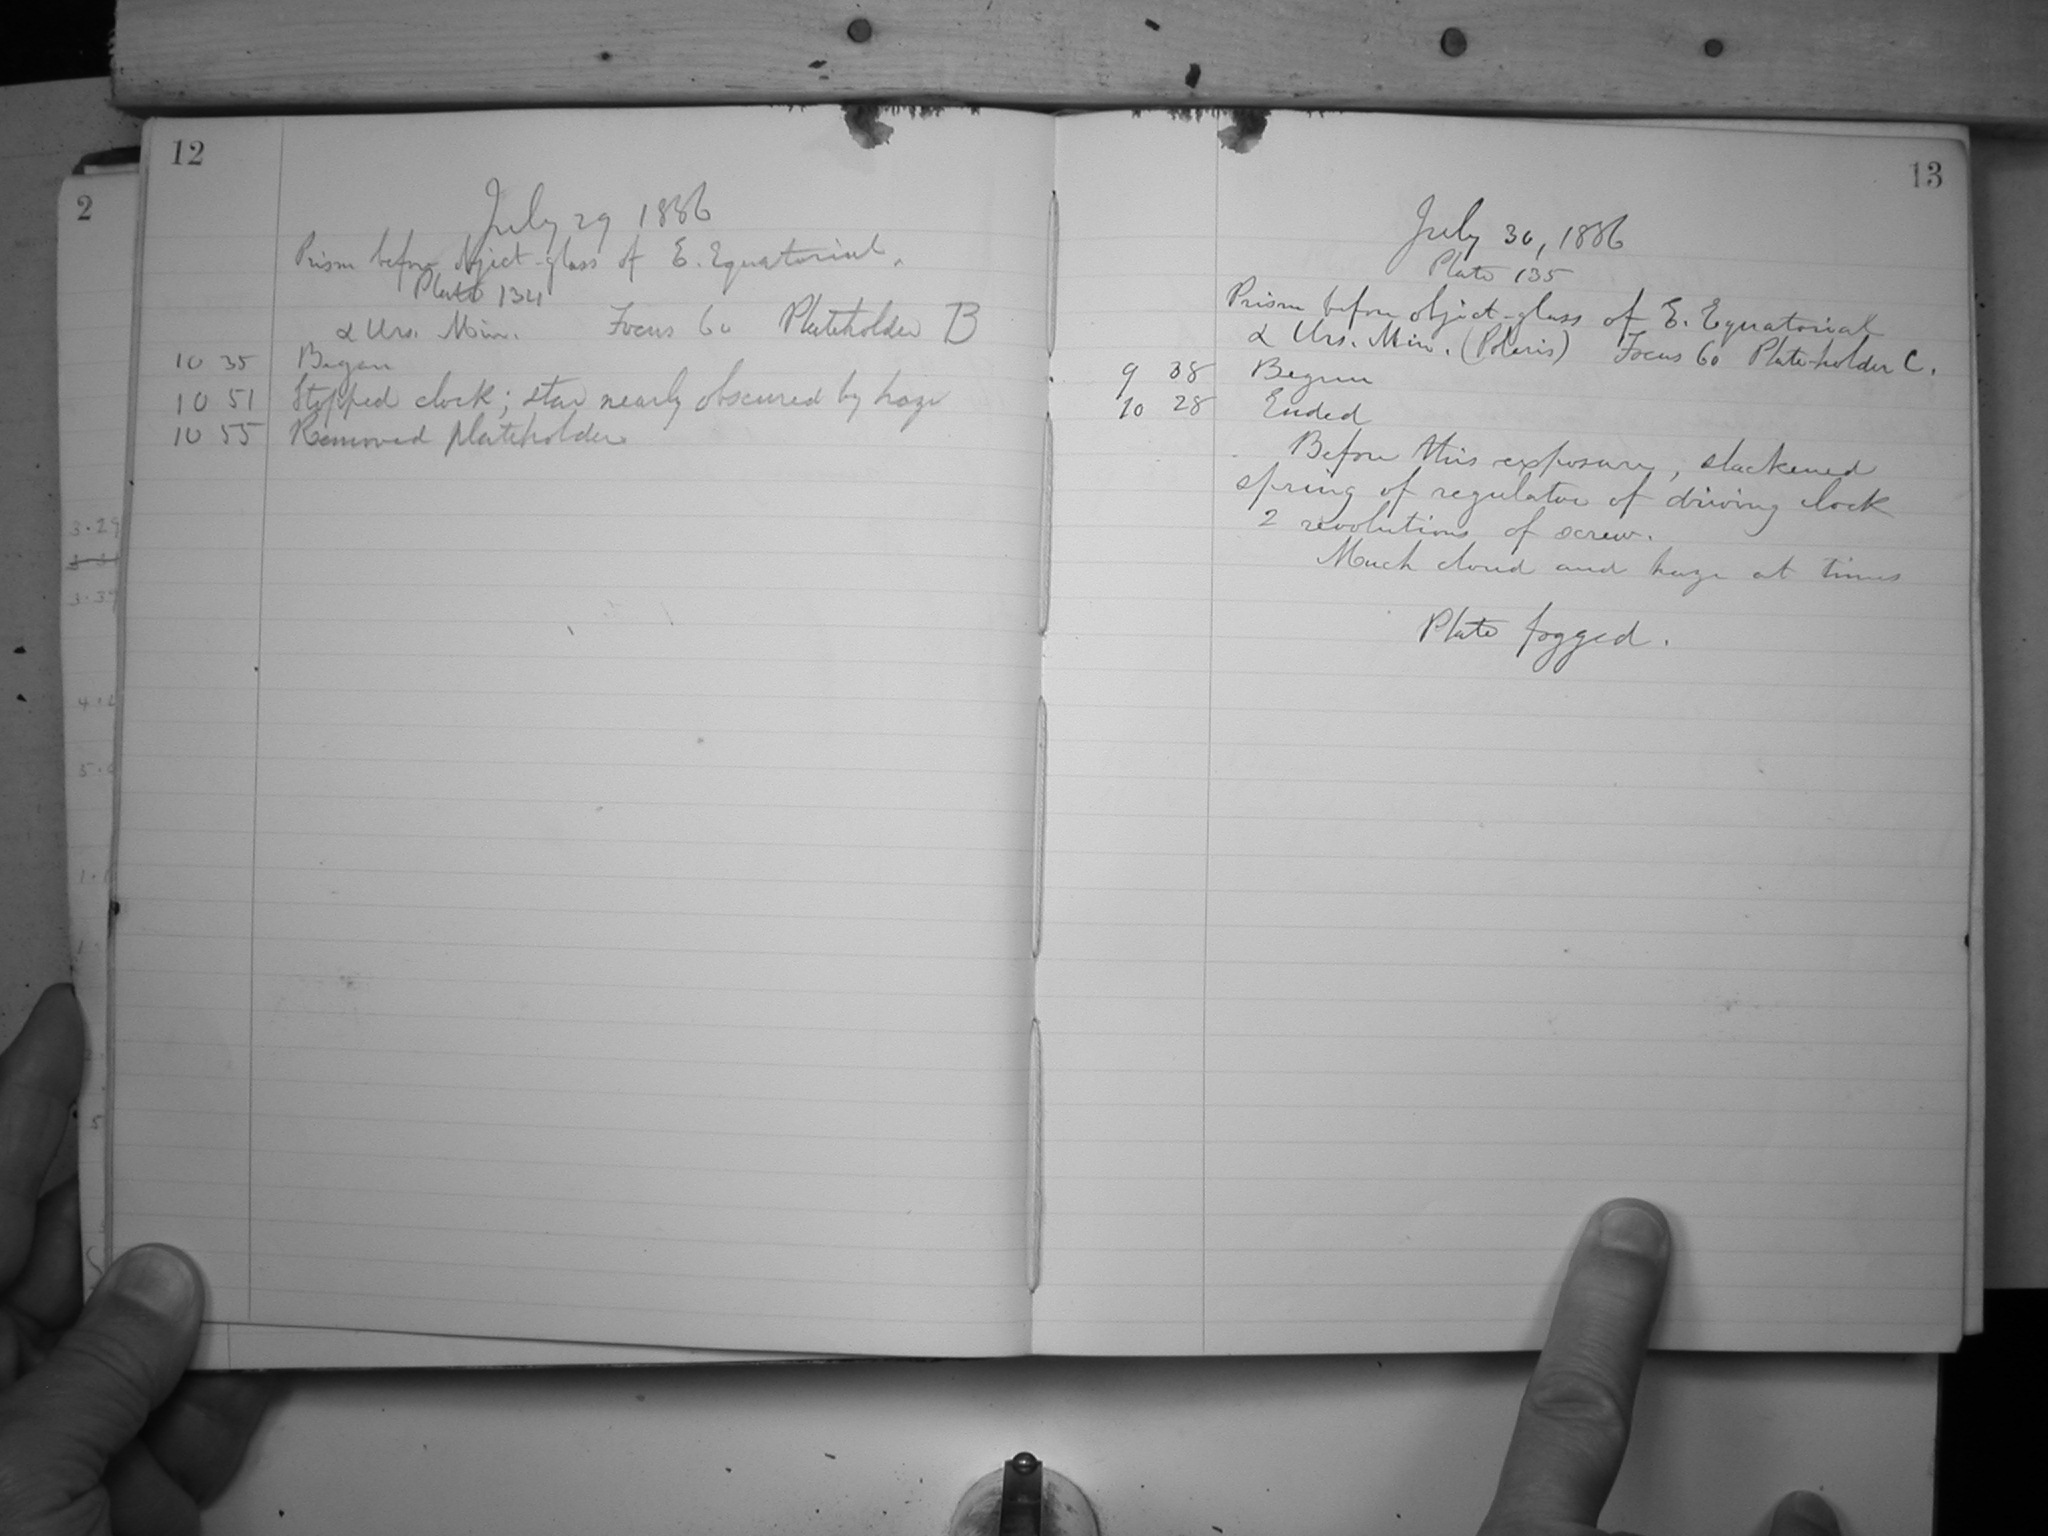 12
July 29 1886
Prism before object-glass of E. Equatorial.
Plate 134
α Urs. Min. Focus 60 Plateholder B
10 35 Began
10 51 Stopped clock; star nearly obscured by haze
10 55 Removed plateholder
2
3.29
3.39
13
July 30, 1886
Plate 135
Prism before object-glass of E. Equatorial
α Urs. Min. (Polaris) Focus 60 Plate-holder C.
9 38 Began
10 28 Ended
Before this exposure, slackened
spring of regulator of driving clock
2 revolutions of screw.
Much cloud and haze at times
Plate fogged.